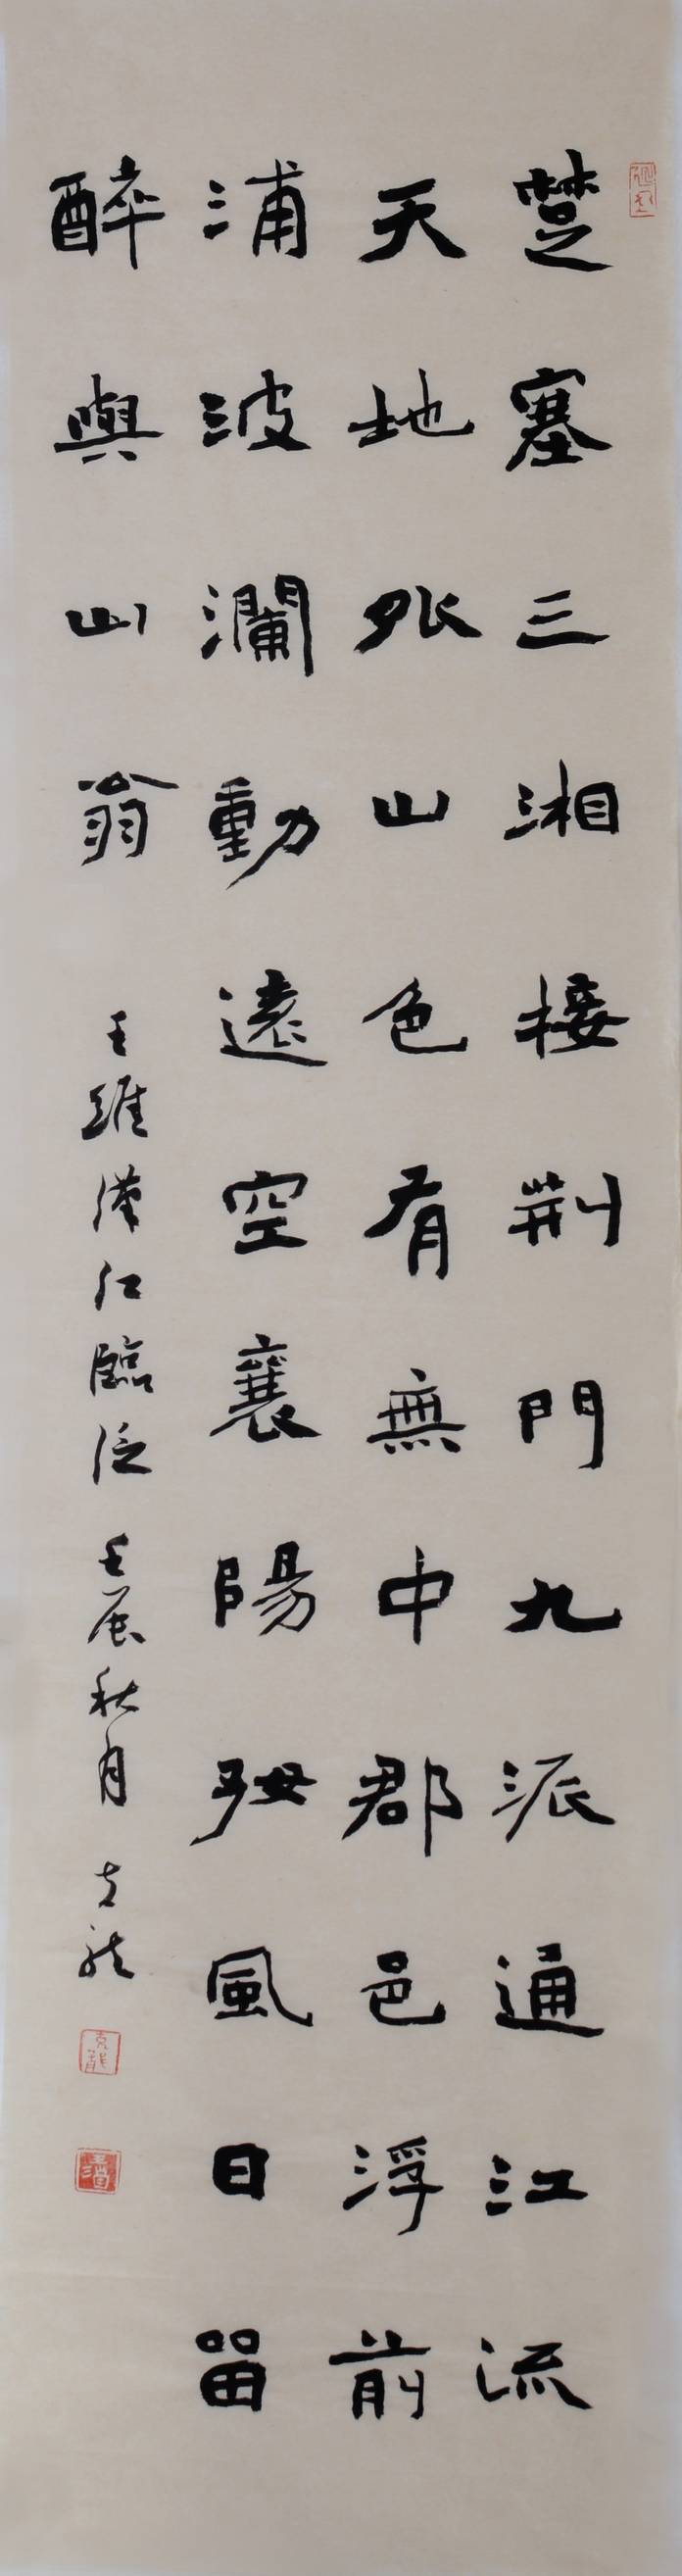 楚塞三湘接荊門九派通江流
天地外山色有無中郡邑浮前
浦波瀾動遠空襄陽好風日留
醉與山翁
王維漢江臨泛 壬辰秋月 克龍